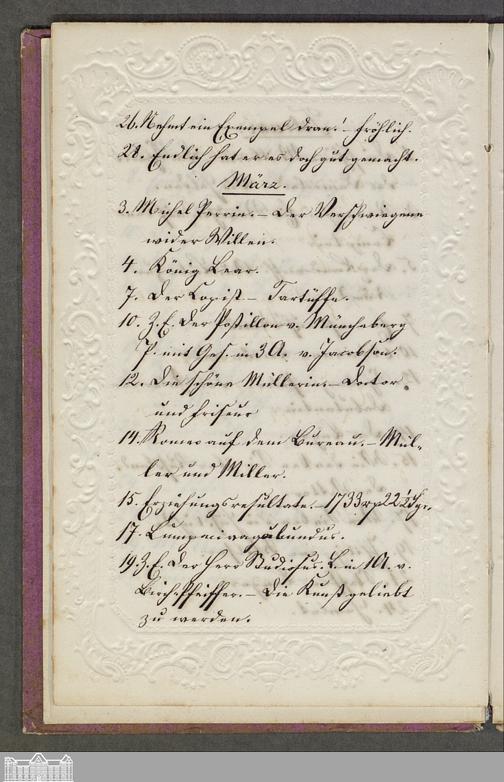 26. Nehmt ein Exempel dran! – fröhlich.
28. Endlich hat er es doch gut gemacht.
März.
3. Michel Perrin. – Der Verschwiegene
wider Willen.
4. König Lear.
7. Der Copist – Tartüffe.
10. Z. E. Der Postillon v. Müncheberg
P. mit Ges. in 3 A. v. Jacobson.
12. Die schöne Müllerin – Doctor
und Friseur
14. Romeo auf dem Bureau. – Mül-
ler und Miller.
15. Erziehungsresultate. – 1733 rp 22½ Sgr.
17. Lumpacivagabundus.
19. Z. E. Der Herr Studiosus. L. in 1 A. v.
Birch-Pfeiffer. – Die Kunst geliebt
zu werden.